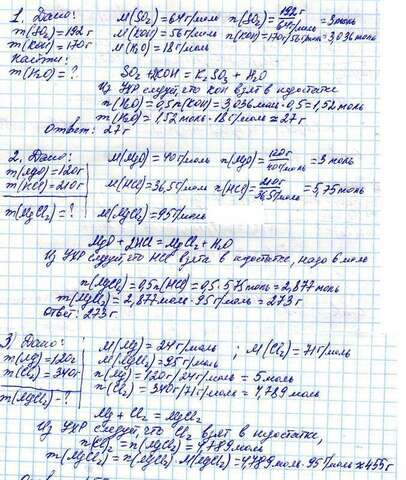 1. Дано:
m(SO₂)=192г
m(KOH)=170г
Найти:
m(H₂O)=?
M(SO₂)=64г/моль n(SO₂)=192г/64г/моль=3моль
M(KOH)=56г/моль n(KOH)=170г/56г/моль=3,036моль
M(H₂O)=18г/моль
SO₂+2KOH=K₂SO₃+H₂O
Из УХР следует, что KOH взят в недостатке
n(H₂O)=0,5n(KOH)=3,036моль·0,5=1,52моль
m(H₂O)=1,52моль·18г/моль≈27г
Ответ: 27г
2. Дано:
m(MgO)=120г
m(HCl)=210г
m(MgCl₂)=?
M(MgO)=40г/моль n(MgO)=120г/40г/моль=3моль
M(HCl)=36,5г/моль n(HCl)=210г/36,5г/моль=5,75моль
M(MgCl₂)=95г/моль
MgO+2HCl=MgCl₂+H₂O
Из УХР следует, что HCl взята в недостатке, надо 6 моль
n(MgCl₂)=0,5n(HCl)=0,5·5,75моль=2,877моль
m(MgCl₂)=2,877моль·95г/моль=273г
Ответ: 273г
3 Дано:
m(Mg)=120г
m(Cl₂)=340г
m(MgCl₂)-?
M(Mg)=24г/моль ; M(Cl₂)=71г/моль
M(MgCl₂)=95г/моль
n(Mg)=120г/24г/моль=5моль
n(Cl₂)=340г/71г/моль=4,789моль
Mg+Cl₂=MgCl₂
Из УХР следует, что Cl₂ взят в недостатке,
n(Cl₂)=n(MgCl₂)=4,789моль
m(MgCl₂)=n(MgCl₂)·M(MgCl₂)=4,789моль·95г/моль≈455г